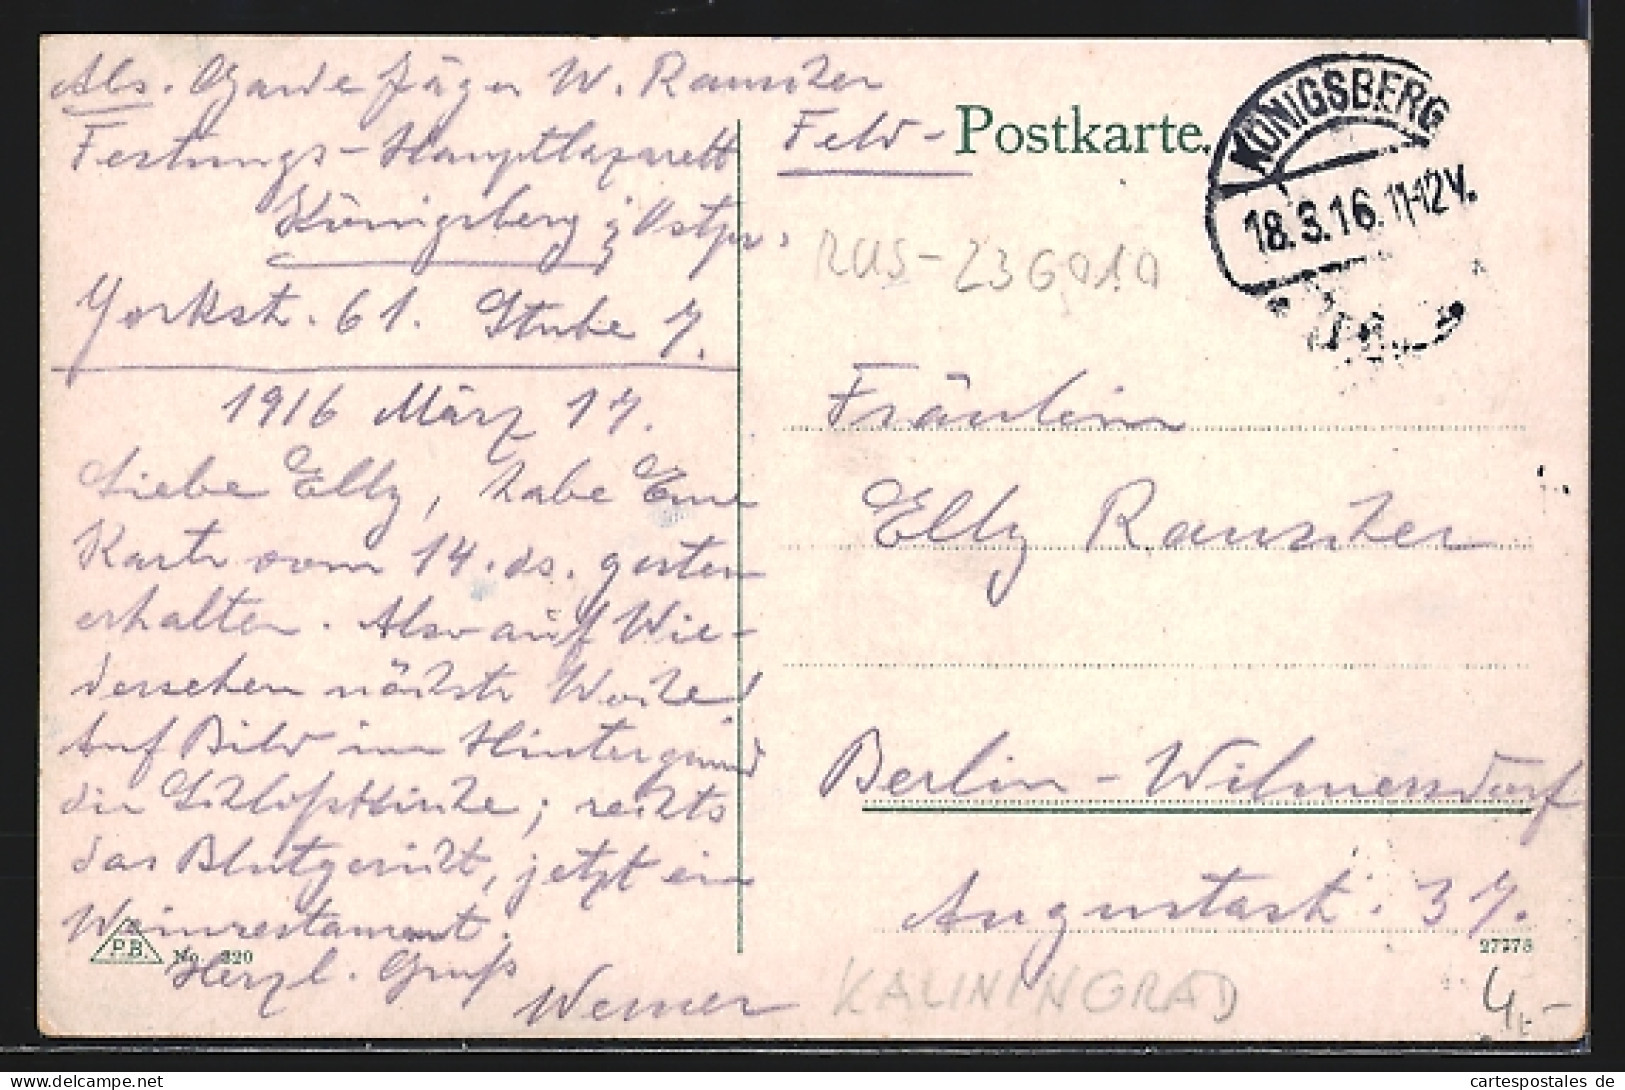 Abs. Garde Jäger W. Rauscher
Festungs-Hauptlazarett
Königsberg i. Ostpr.
Yorkstr. 61. Stube 7.
1916 März 17.
Liebe Elly, habe Eure
Karte vom 14. ds. gestern
erhalten. Also auf Wie-
dersehen nächste Woche!
Auf Bild im Hintergrund
die Schloßkirche; rechts
das Blutgericht, jetzt ein
Weinrestaurant.
Herzl. Gruß
Werner
P.B. No. 320
Feld- Postkarte.
KÖNIGSBERG
18.3.16. 11-12V.
RUS-236010
Fräulein
Elly Rauscher
Berlin-Wilmersdorf
Augustastr. 37.
27778
KALININGRAD
4,-
cartespostales de